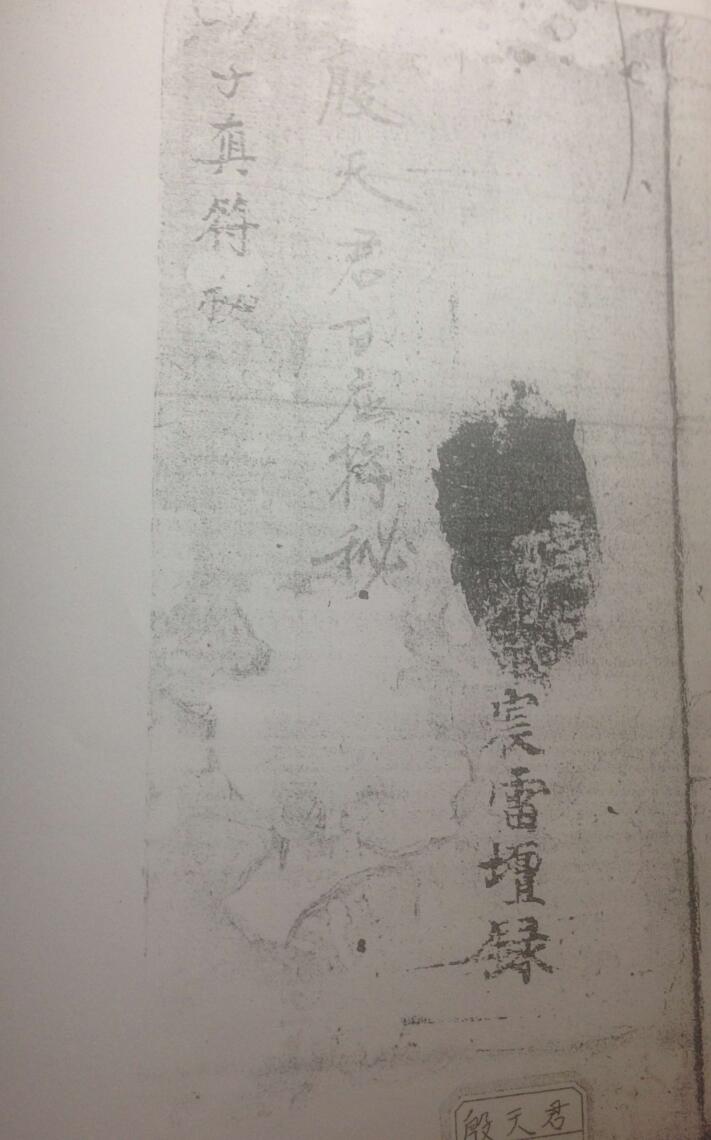 宸雷壇録
殷天君百应将秘
子真符秘
殷天君